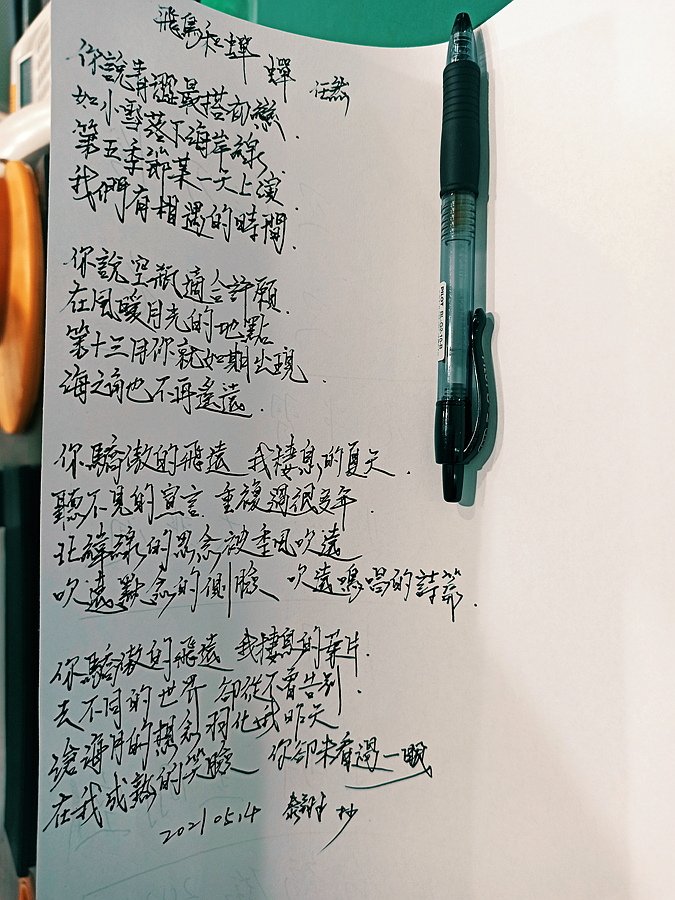 飛鳥和蟬 蟬 任然
你說青澀最搭初戀.
如小雪落下海岸線.
第五季節某一天上演.
我們有相遇的時間.
你說空瓶適合許願.
在風暖月光的地點
第十三月你就如期出現.
海之角也不再遙遠.
你驕傲的飛遠 我棲息的夏天.
聽不見的宣言 重複過很多年.
北緯線的思念被季風吹遠
吹遠默念的側臉 吹遠鳴唱的詩篇.
你驕傲的飛遠 我棲息的葉片.
去不同的世界 卻從不曾告別.
滄海月的想念羽化我昨天
在我成熟的笑臉 你卻未看過一眼
2021 05.4 抄
PILOT BL-G2-10-B